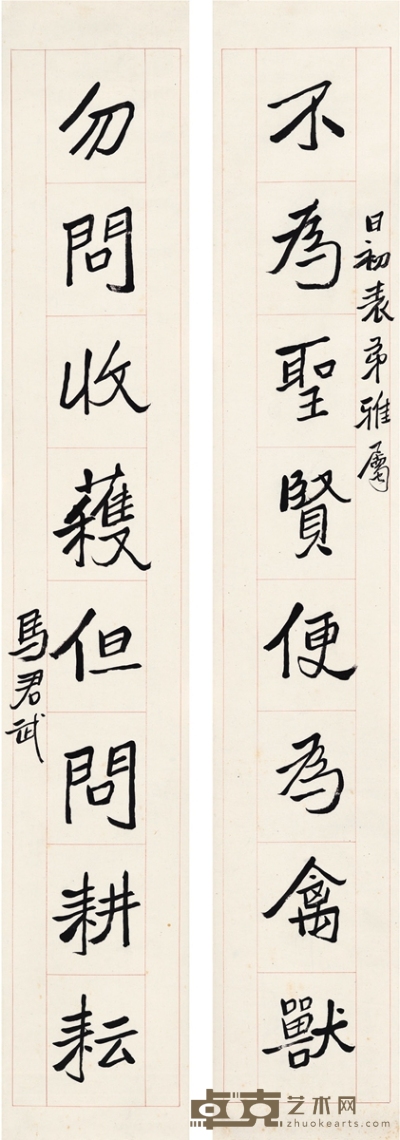 日初表弟雅屬
不為聖賢便為禽獸
勿問收穫但問耕耘
馬君武
卓克艺术网
www.zhuokearts.com